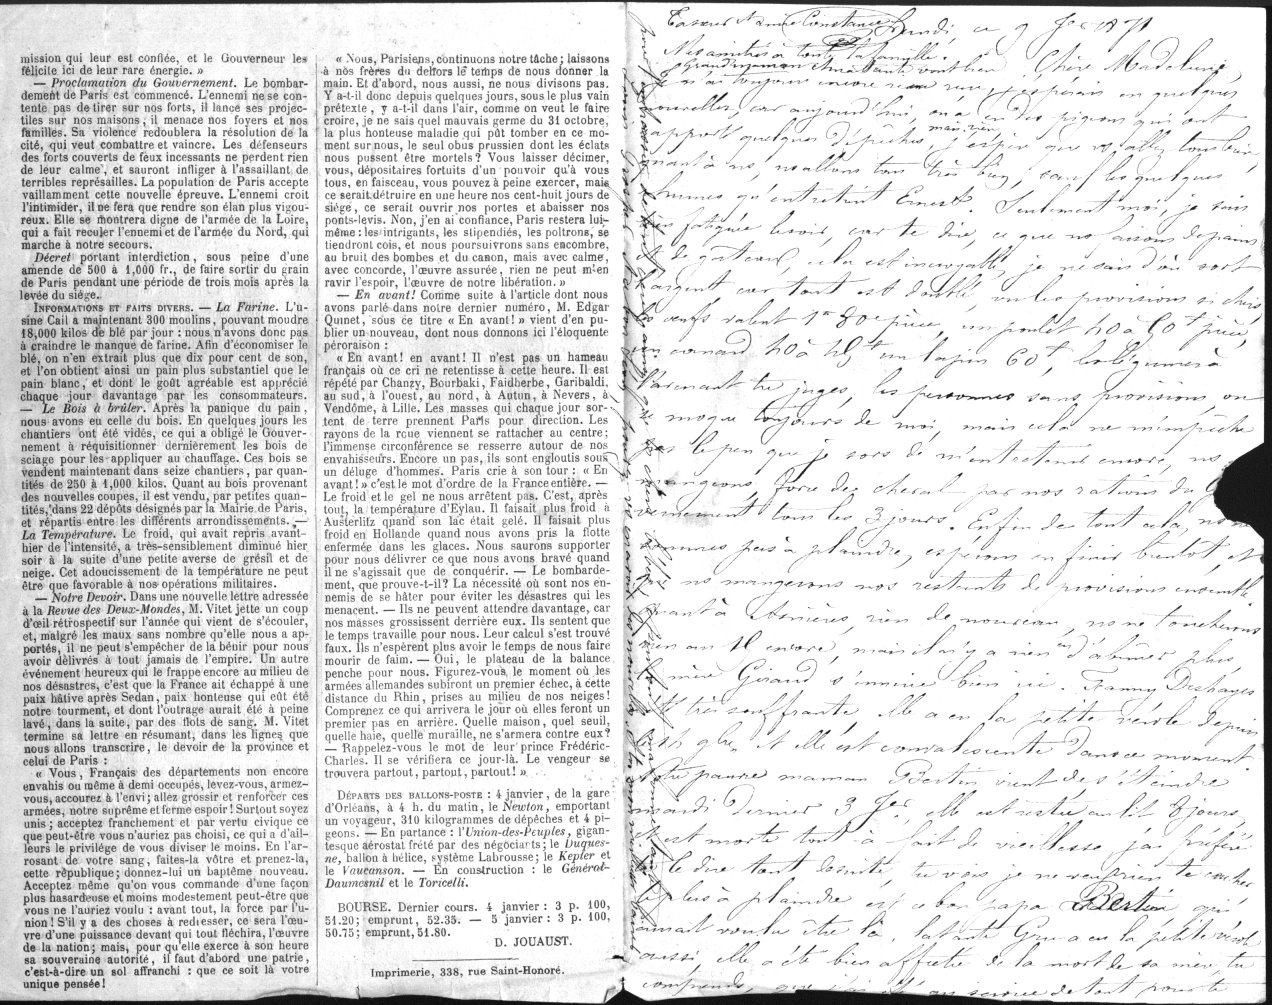 mission qui leur est confiée, et le Gouverneur les
félicite ici de leur rare énergie. »
— Proclamation du Gouvernement. Le bombar-
dement de Paris est commencé. L'ennemi ne se con-
tente pas de tirer sur nos forts, il lance ses projec-
tiles sur nos maisons, il menace nos foyers et nos
familles. Sa violence redoublera la résolution de la
cité, qui veut combattre et vaincre. Les défenseurs
des forts couverts de feux incessants ne perdent rien
de leur calme, et sauront infliger à l'assaillant de
terribles représailles. La population de Paris accepte
vaillamment cette nouvelle épreuve. L'ennemi croit
l'intimider, il ne fera que rendre son élan plus vigou-
reux. Elle se montrera digne de l'armée de la Loire,
qui a fait reculer l'ennemi et de l'armée du Nord, qui
marche à notre secours.
Décret portant interdiction, sous peine d'une
amende de 500 à 1,000 fr., de faire sortir du grain
de Paris pendant une période de trois mois après la
levée du siége.
INFORMATIONS ET FAITS DIVERS. — La Farine. L'u-
sine Cail a maintenant 300 moulins, pouvant moudre
18,000 kilos de blé par jour : nous n'avons donc pas
à craindre le manque de farine. Afin d'économiser le
blé, on n'en extrait plus que dix pour cent de son,
et l'on obtient ainsi un pain plus substantiel que le
pain blanc, et dont le goût agréable est apprécié
chaque jour davantage par les consommateurs.
— Le Bois à brûler. Après la panique du pain,
nous avons eu celle du bois. En quelques jours les
chantiers ont été vidés, ce qui a obligé le Gouver-
nement à réquisitionner dernièrement les bois de
sciage pour les appliquer au chauffage. Ces bois se
vendent maintenant dans seize chantiers, par quan-
tités de 250 à 1,000 kilos. Quant au bois provenant
des nouvelles coupes, il est vendu, par petites quan-
tités, dans 22 dépôts désignés par la Mairie de Paris,
et répartis entre les différents arrondissements. —
La Température. Le froid, qui avait repris avant-
hier de l'intensité, a très-sensiblement diminué hier
soir à la suite d'une petite averse de grésil et de
neige. Cet adoucissement de la température ne peut
être que favorable à nos opérations militaires.
— Notre Devoir. Dans une nouvelle lettre adressée
à la Revue des Deux-Mondes, M. Vitet jette un coup
d'œil rétrospectif sur l'année qui vient de s'écouler,
et, malgré les maux sans nombre qu'elle nous a ap-
portés, il ne peut s'empêcher de la bénir pour nous
avoir délivrés à tout jamais de l'empire. Un autre
événement heureux qui le frappe encore au milieu de
nos désastres, c'est que la France ait échappé à une
paix hâtive après Sedan, paix honteuse qui eût été
notre tourment, et dont l'outrage aurait été à peine
lavé, dans la suite, par des flots de sang. M. Vitet
termine sa lettre en résumant, dans les lignes que
nous allons transcrire, le devoir de la province et
celui de Paris :
« Vous, Français des départements non encore
envahis ou même à demi occupés, levez-vous, armez-
vous, accourez à l'envi; allez grossir et renforcer ces
armées, notre suprême et ferme espoir! Surtout soyez
unis ; acceptez franchement et par vertu civique ce
que peut-être vous n'auriez pas choisi, ce qui a d'ail-
leurs le privilége de vous diviser le moins. En l'ar-
rosant de votre sang, faites-la vôtre et prenez-la,
cette république; donnez-lui un baptême nouveau.
Acceptez même qu'on vous commande d'une façon
plus hasardeuse et moins modestement peut-être que
vous ne l'auriez voulu : avant tout, la force par l'u-
nion! S'il y a des choses à redresser, ce sera l'œu-
vre d'une puissance devant qui tout fléchira, l'œuvre
de la nation; mais, pour qu'elle exerce à son heure
sa souveraine autorité, il faut d'abord une patrie,
c'est-à-dire un sol affranchi : que ce soit là votre
unique pensée!
« Nous, Parisiens, continuons notre tâche; laissons
à nos frères du dehors le temps de nous donner la
main. Et d'abord, nous aussi, ne nous divisons pas.
Y a-t-il donc depuis quelques jours, sous le plus vain
prétexte, y a-t-il dans l'air, comme on veut le faire
croire, je ne sais quel mauvais germe du 31 octobre,
la plus honteuse maladie qui pût tomber en ce mo-
ment sur nous, le seul obus prussien dont les éclats
nous pussent être mortels? Vous laisser décimer,
vous, dépositaires fortuits d'un pouvoir qu'à vous
tous, en faisceau, vous pouvez à peine exercer, mais
ce serait détruire en une heure nos cent-huit jours de
siége, ce serait ouvrir nos portes et abaisser nos
ponts-levis. Non, j'en ai confiance, Paris restera lui-
même : les intrigants, les stipendiés, les poltrons, se
tiendront cois, et nous poursuivrons sans encombre,
au bruit des bombes et du canon, mais avec calme,
avec concorde, l'œuvre assurée, rien ne peut m'en
ravir l'espoir, l'œuvre de notre libération. »
— En avant! Comme suite à l'article dont nous
avons parlé dans notre dernier numéro, M. Edgar
Quinet, sous ce titre « En avant! » vient d'en pu-
blier un nouveau, dont nous donnons ici l'éloquente
péroraison :
« En avant! en avant! Il n'est pas un hameau
français où ce cri ne retentisse à cette heure. Il est
répété par Chanzy, Bourbaki, Faidherbe, Garibaldi,
au sud, à l'ouest, au nord, à Autun, à Nevers, à
Vendôme, à Lille. Les masses qui chaque jour sor-
tent de terre prennent Paris pour direction. Les
rayons de la roue viennent se rattacher au centre;
l'immense circonférence se resserre autour de nos
envahisseurs. Encore un pas, ils sont engloutis sous
un déluge d'hommes. Paris crie à son tour : « En
avant! » c'est le mot d'ordre de la France entière. —
Le froid et le gel ne nous arrêtent pas. C'est, après
tout, la température d'Eylau. Il faisait plus froid à
Austerlitz quand son lac était gelé. Il faisait plus
froid en Hollande quand nous avons pris la flotte
enfermée dans les glaces. Nous saurons supporter
pour nous délivrer ce que nous avons bravé quand
il ne s'agissait que de conquérir. — Le bombarde-
ment, que prouve-t-il? La nécessité où sont nos en-
nemis de se hâter pour éviter les désastres qui les
menacent. — Ils ne peuvent attendre davantage, car
nos masses grossissent derrière eux. Ils sentent que
le temps travaille pour nous. Leur calcul s'est trouvé
faux. Ils n'espèrent plus avoir le temps de nous faire
mourir de faim. — Oui, le plateau de la balance
penche pour nous. Figurez-vous le moment où les
armées allemandes subiront un premier échec, à cette
distance du Rhin, prises au milieu de nos neiges!
Comprenez ce qui arrivera le jour où elles feront un
premier pas en arrière. Quelle maison, quel seuil,
quelle haie, quelle muraille, ne s'armera contre eux?
— Rappelez-vous le mot de leur prince Frédéric-
Charles. Il se vérifiera ce jour-là. Le vengeur se
trouvera partout, partout, partout! »
DÉPARTS DES BALLONS-POSTE : 4 janvier, de la gare
d'Orléans, à 4 h. du matin, le Newton, emportant
un voyageur, 310 kilogrammes de dépêches et 4 pi-
geons. — En partance : l'Union-des-Peuples, gigan-
tesque aérostat frété par des négociants; le Duques-
ne, ballon à hélice, système Labrousse; le Kepler et
le Vaucanson. — En construction : le Général-
Daumesnil et le Toricelli.
BOURSE. Dernier cours. 4 janvier : 3 p. 100,
51.20; emprunt, 52.35. — 5 janvier : 3 p. 100,
50.75; emprunt, 51.80.
D. JOUAUST.
Imprimerie, 338, rue Saint-Honoré.
Constance Lundi, ce 9 Jer 1871
Mes amitiés à toute la famille.
Chère Madeleine,
j'espérais en quelques
nouvelles, car aujourd'hui, on a eu des pigeons qui ont
apporté quelques dépêches, j'espère que vs allez tous bien,
quant à ns, ns allons tous très bien, sauf les quelques
rhumes qu'entretient Ernest. Seulement moi, je suis
bien fatiguée le soir, car te dire, ce que ns faisons de pains
de gateaux, cela est incroyable, je ne sais d'où sort
l'argent car tout est doublé
les oeufs valent un poulet 40 à 50f pièce,
un canard 40 à 45f un lapin 60f, les légumes à
l'avenant tu juges, les personnes sans provisions, on
se moque toujours de moi, mais cela ne m'empêche
pas le peu que je sors de m'entretenir encore, ns
mangeons, force de cheval par nos rations du
tous les 3 jours. Enfin de tout cela, ns ne
sommes pas à plaindre, espérons en finir bientôt, et
ns mangerons nos restants de provisions ensemble
quant à Asnières, rien de nouveau, ns ne toucherons
rien encore, mais il n'y a rien d'abîmé plus,
la mère Girard s'ennuie bien ici. Fanny Deshayes
est très souffrante, elle a eu la petite vérole depuis
et elle est convalescente dans ce moment.
Notre pauvre maman Bertin vient de s'éteindre
mardi dernier 3 Jer, elle est restée au lit 8 jours,
et est morte tout à fait de vieillesse j'ai préféré
te le dire tout de suite, tu vois je ne veux rien te cacher
le plus à plaindre est ce bon papa Bertin qui
aurait voulu être là, la tante a eu la petite vérole
aussi, elle a été bien affectée de la mort de sa mère, tu
comprends,